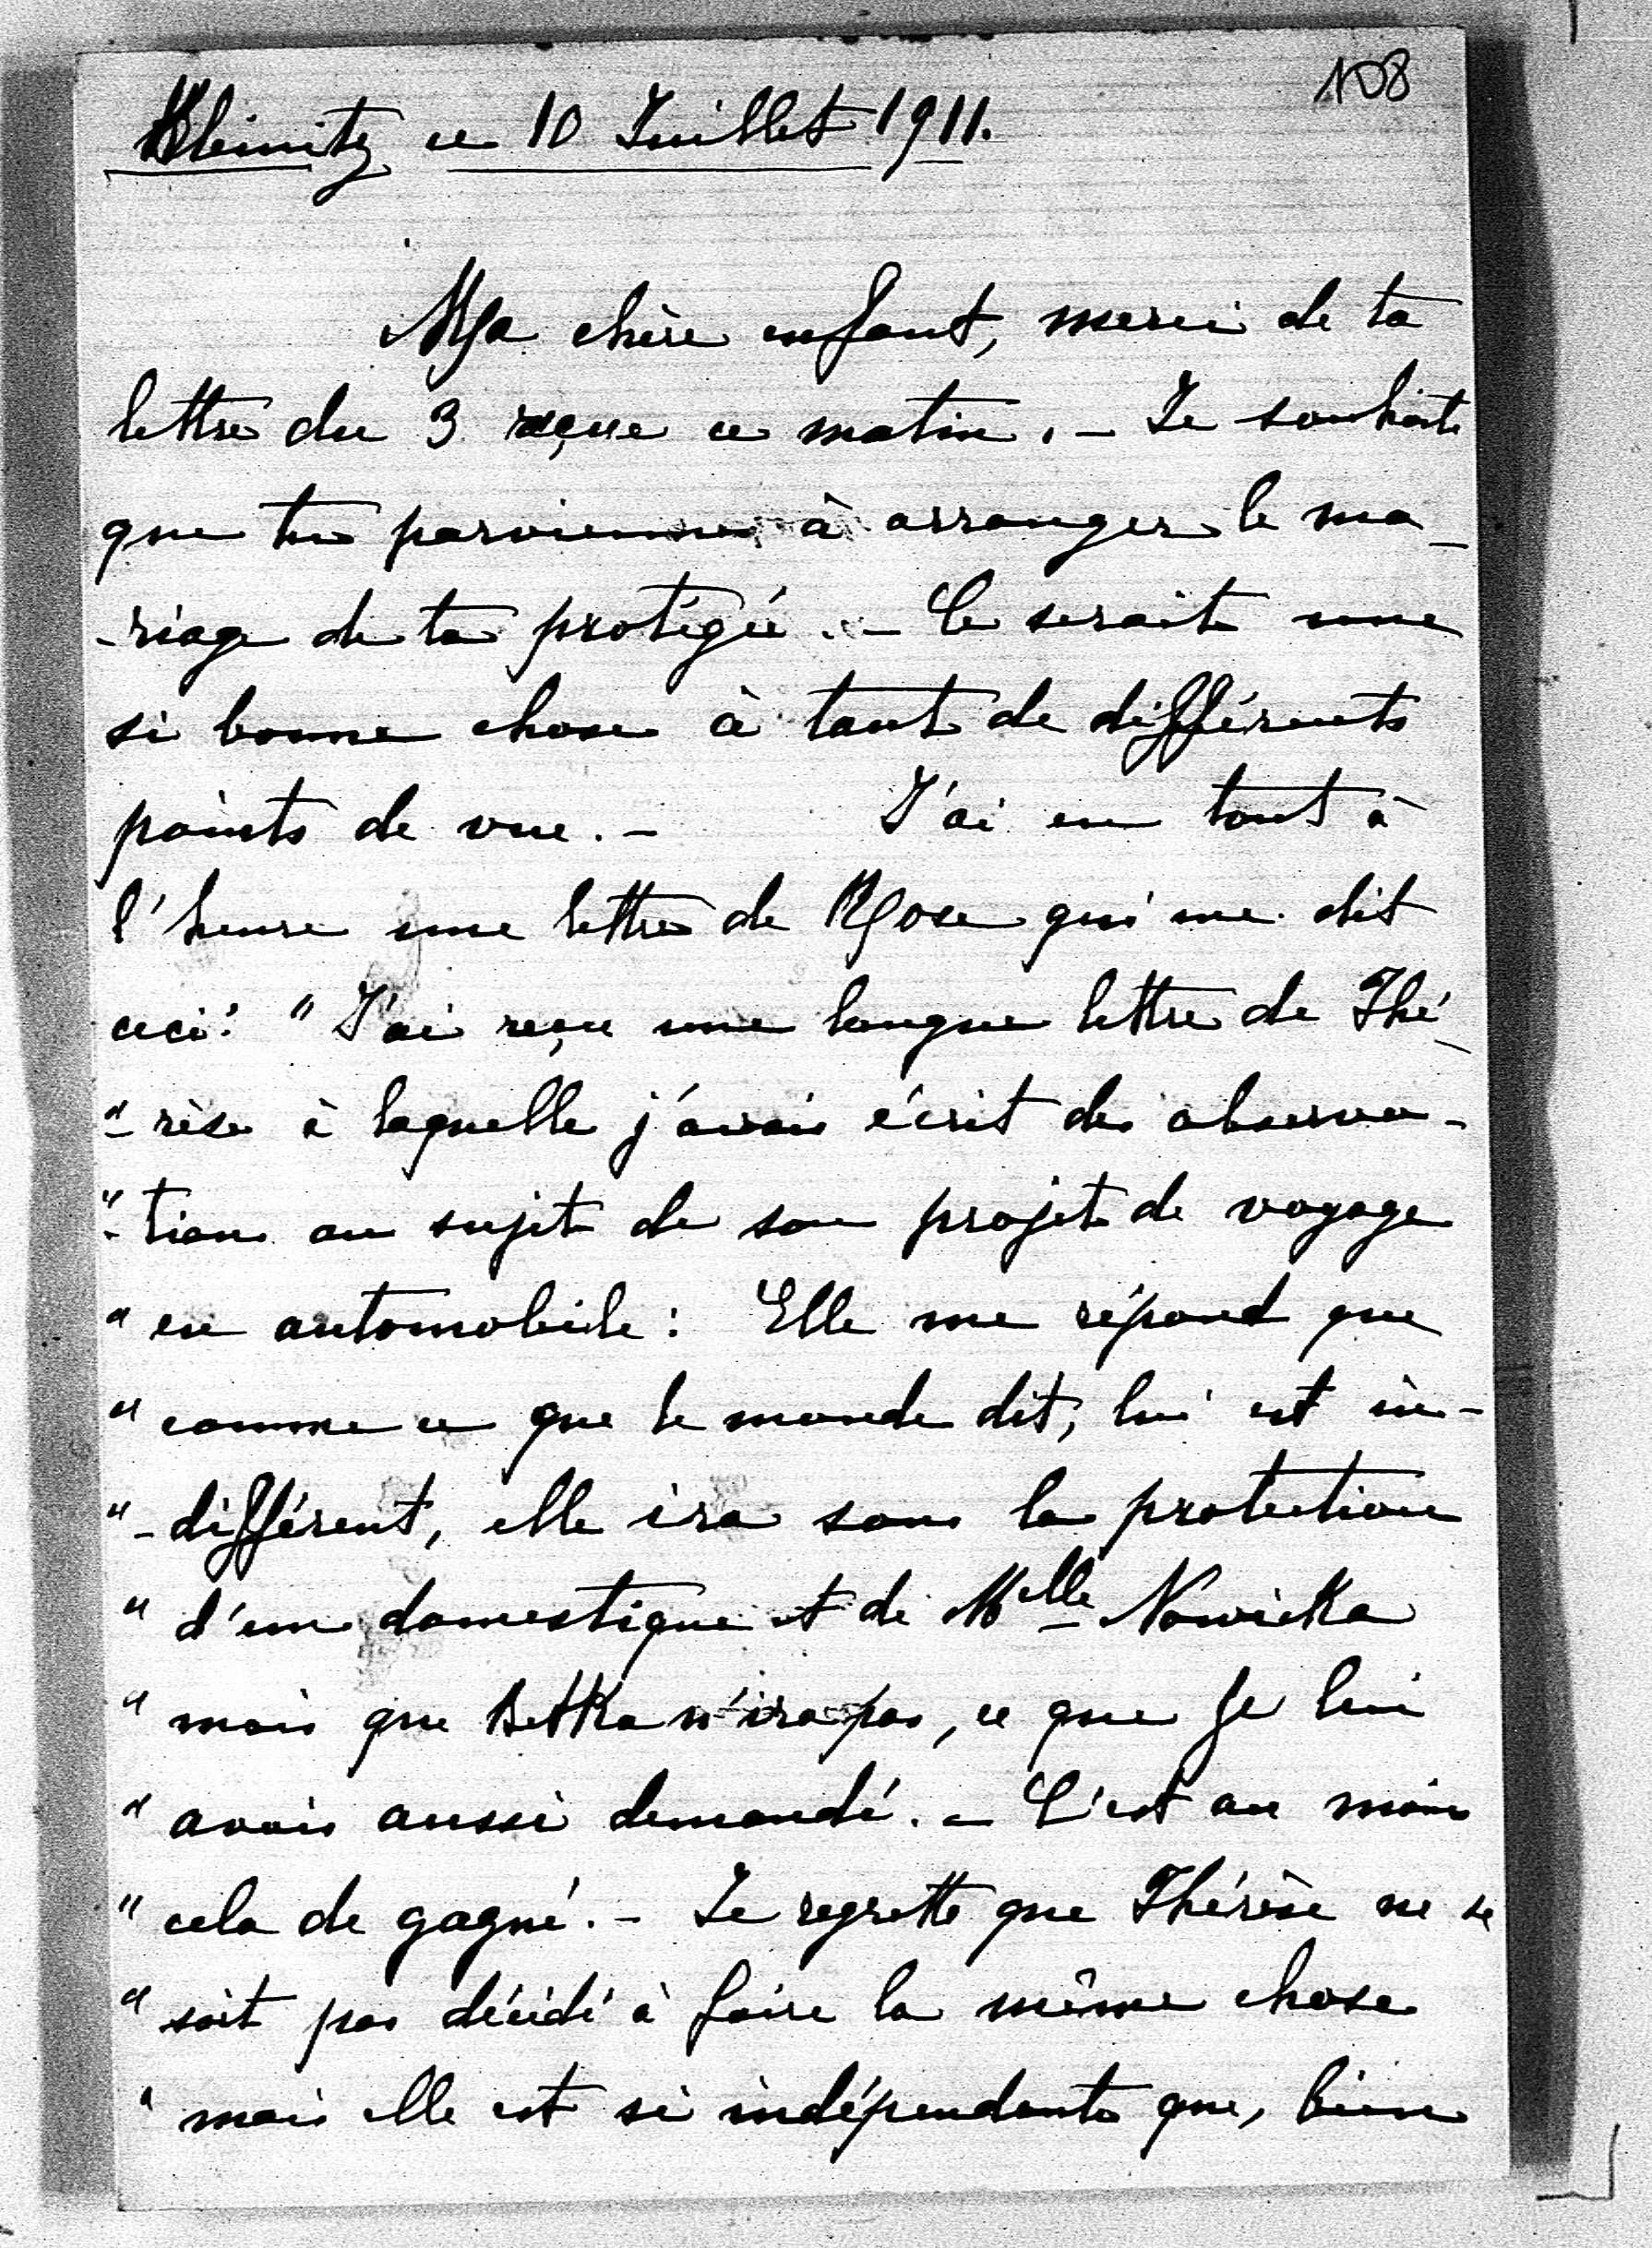 108
Kleinitz ce 10 Juillet 1911.
Ma chère enfant, merci de ta
lettre du 3 reçue ce matin. - Je souhaite
que tu parviennes à arranger le ma-
-riage de ta protégée. - Ce serait une
si bonne chose à tant de différents
points de vue. - J'ai eu tout à
l'heure une lettre de Rose qui me dit
ceci: "J'ai reçu une longue lettre de Thé-
"-rèse à laquelle j'avais écrit des observa-
"-tions au sujet de son projet de voyage
"en automobile: Elle me répond que
"comme ce que le monde dit, lui est in-
"-différent, elle ira sous la protection
"d'un domestique et de Mlle Nowicka
"mais que Betka n'ira pas, ce que je lui
"avais aussi demandé. - C'est au moins
"cela de gagné. - Je regrette que Thérèse ne se
"soit pas décidé à faire la même chose
"mais elle est si indépendante que, bien